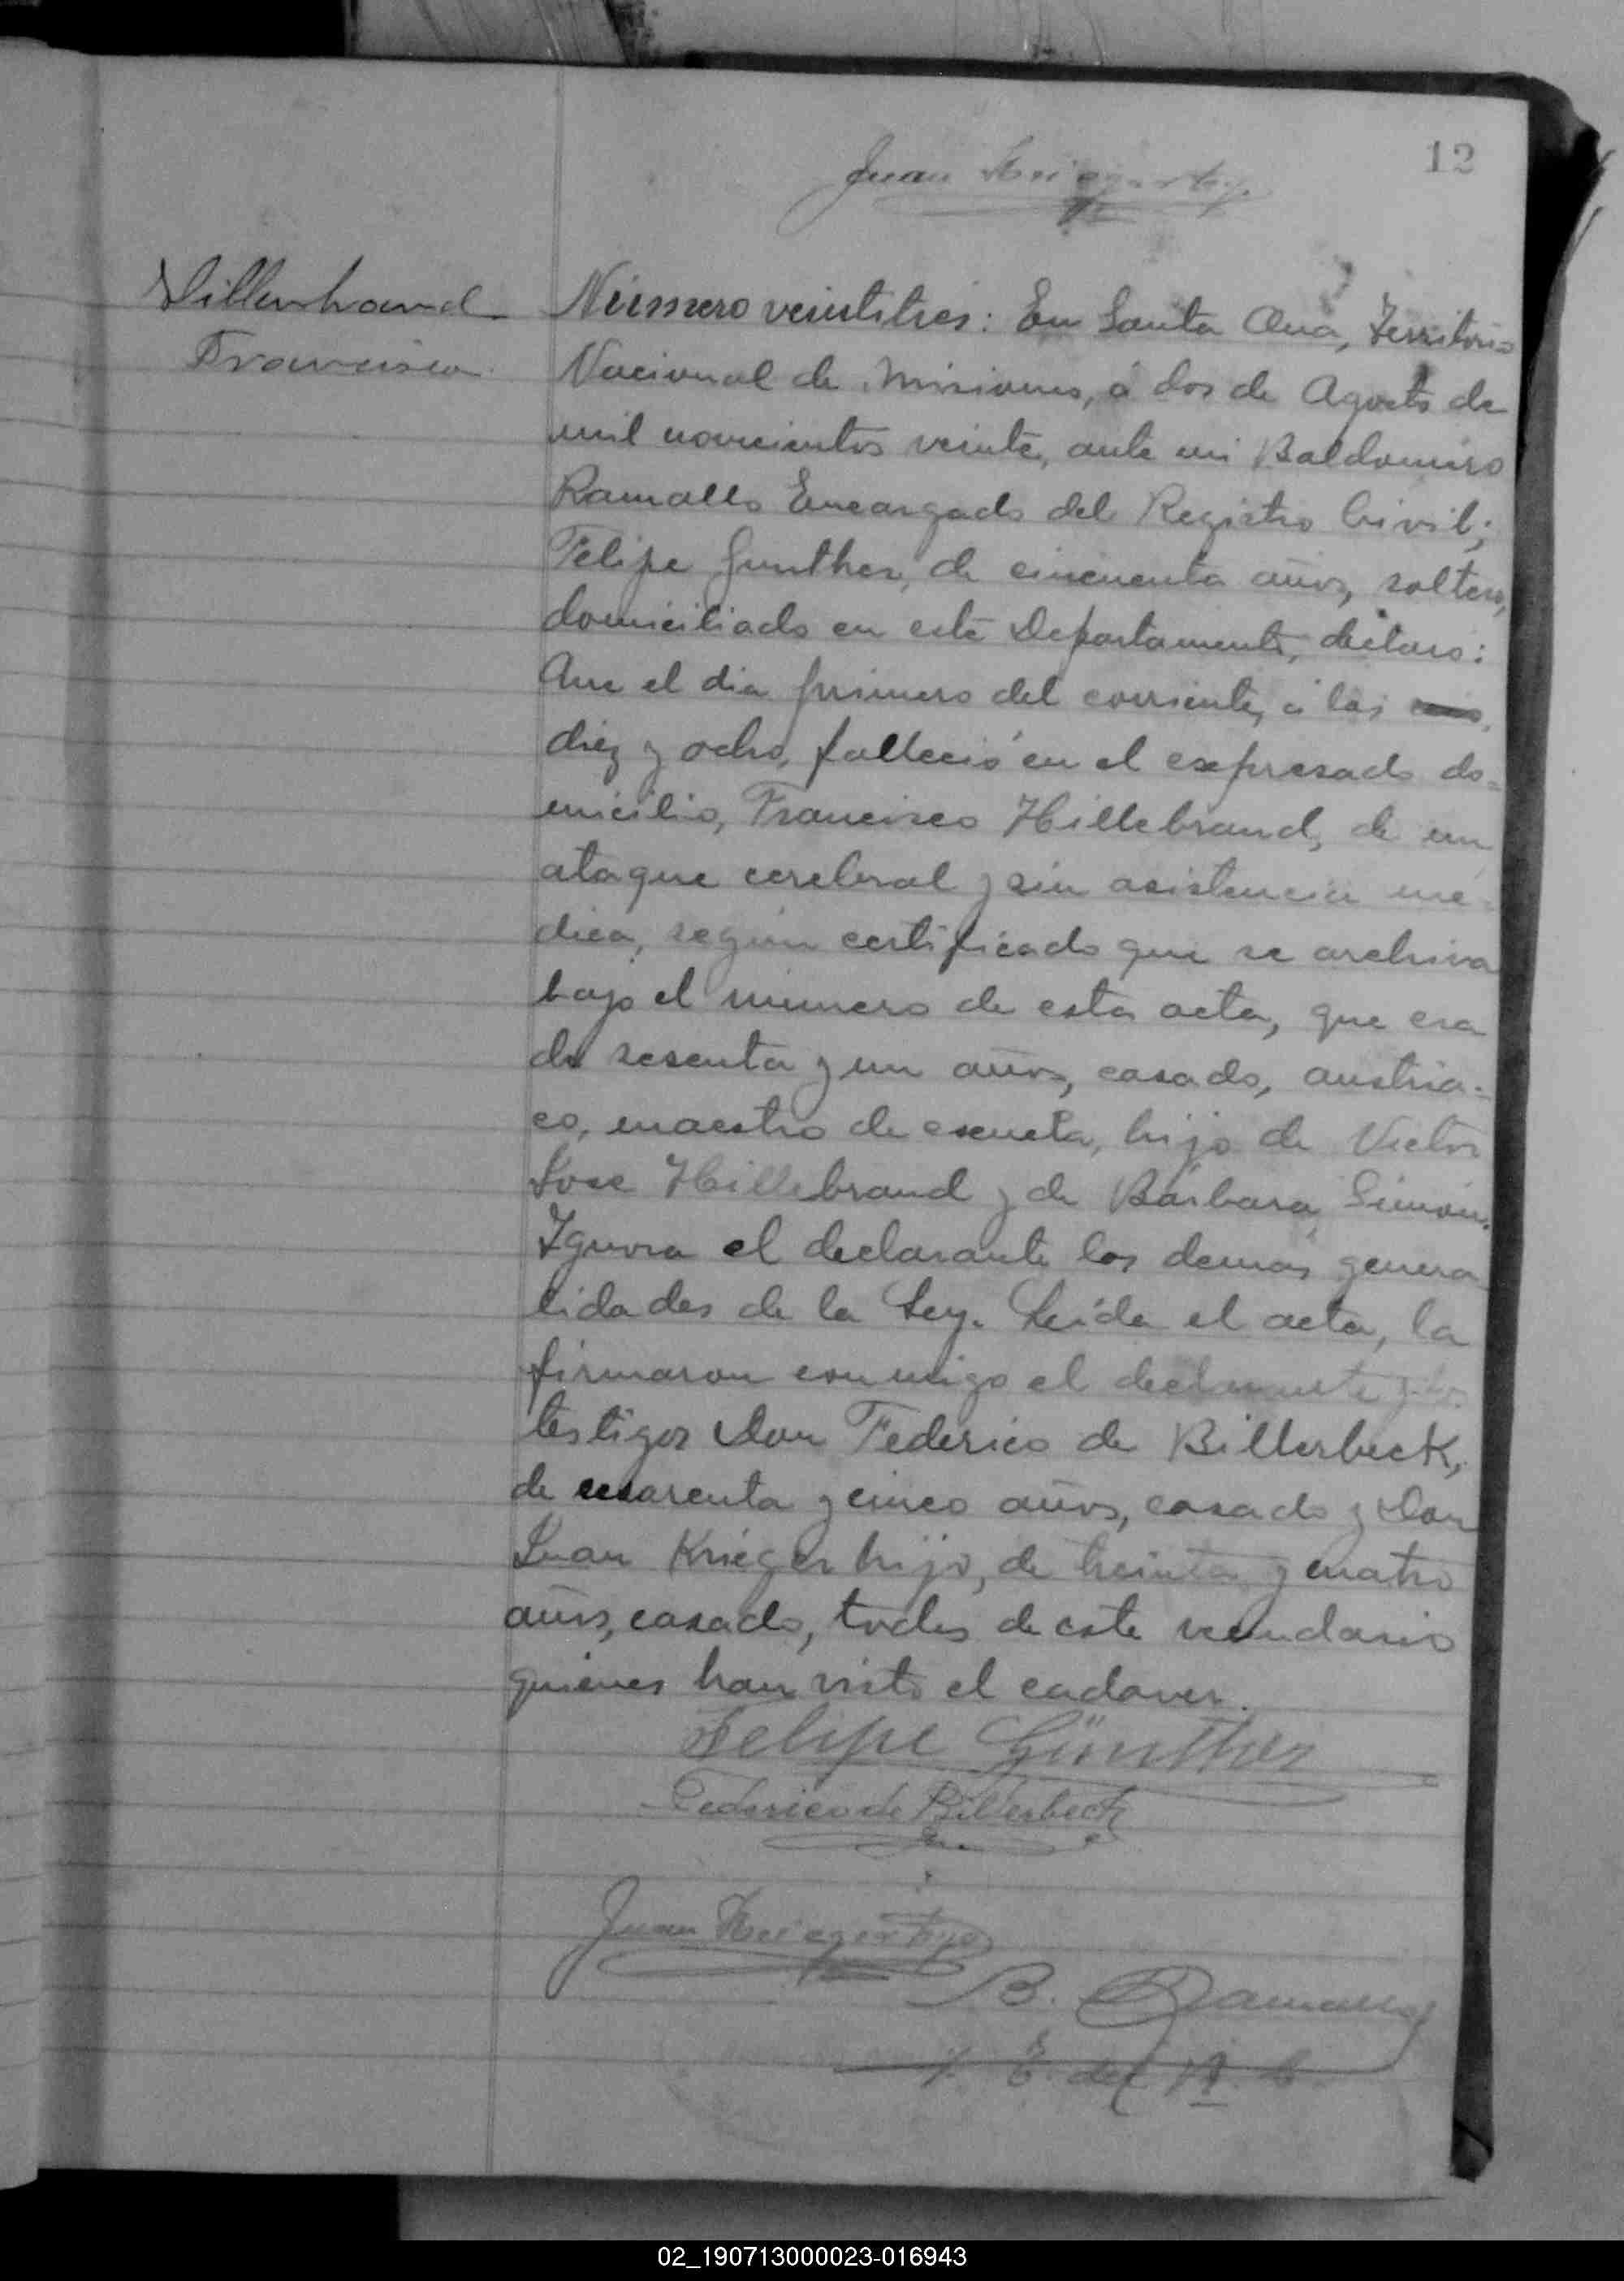 12
Juan Krieger hijo
Hillenbrand
Francisco
Número veintitres: En Santa Ana, Territorio
Nacional de Misiones, á dos de Agosto de
mil novecientos veinte, ante mi Baldomero
Ramallo Encargado del Registro Civil;
Felipe Gunther, de cincuenta años, soltero,
domiciliado en este Departamento, declaro:
Que el dia primero del corriente, á las
diez y ocho, falleció en el expresado do=
micilio, Francisco Hillebrand, de un
ataque cerebral y sin asistencia mé-
dica, según certificado que se archiva
bajo el número de esta acta, que era
de sesenta y un años, casado, austria-
co, maestro de escuela, hijo de Victor
Jose Hillebrand y de Bárbara Simón.
Ignora el declarante las demás genera
lidades de la Ley. Leida el acta, la
firmaron conmigo el declarante y los
testigos Don Federico de Billerbeck,
de cuarenta y cinco años, casado y Don
Juan Krieger hijo, de treinta y cuatro
años, casado, todos de este vecindario
quienes han visto el cadaver.
Felipe Günther
Federico de Billerbeck
Juan Krieger hijo
B. Ramallo
E. del R. C.
02_190713000023-016943